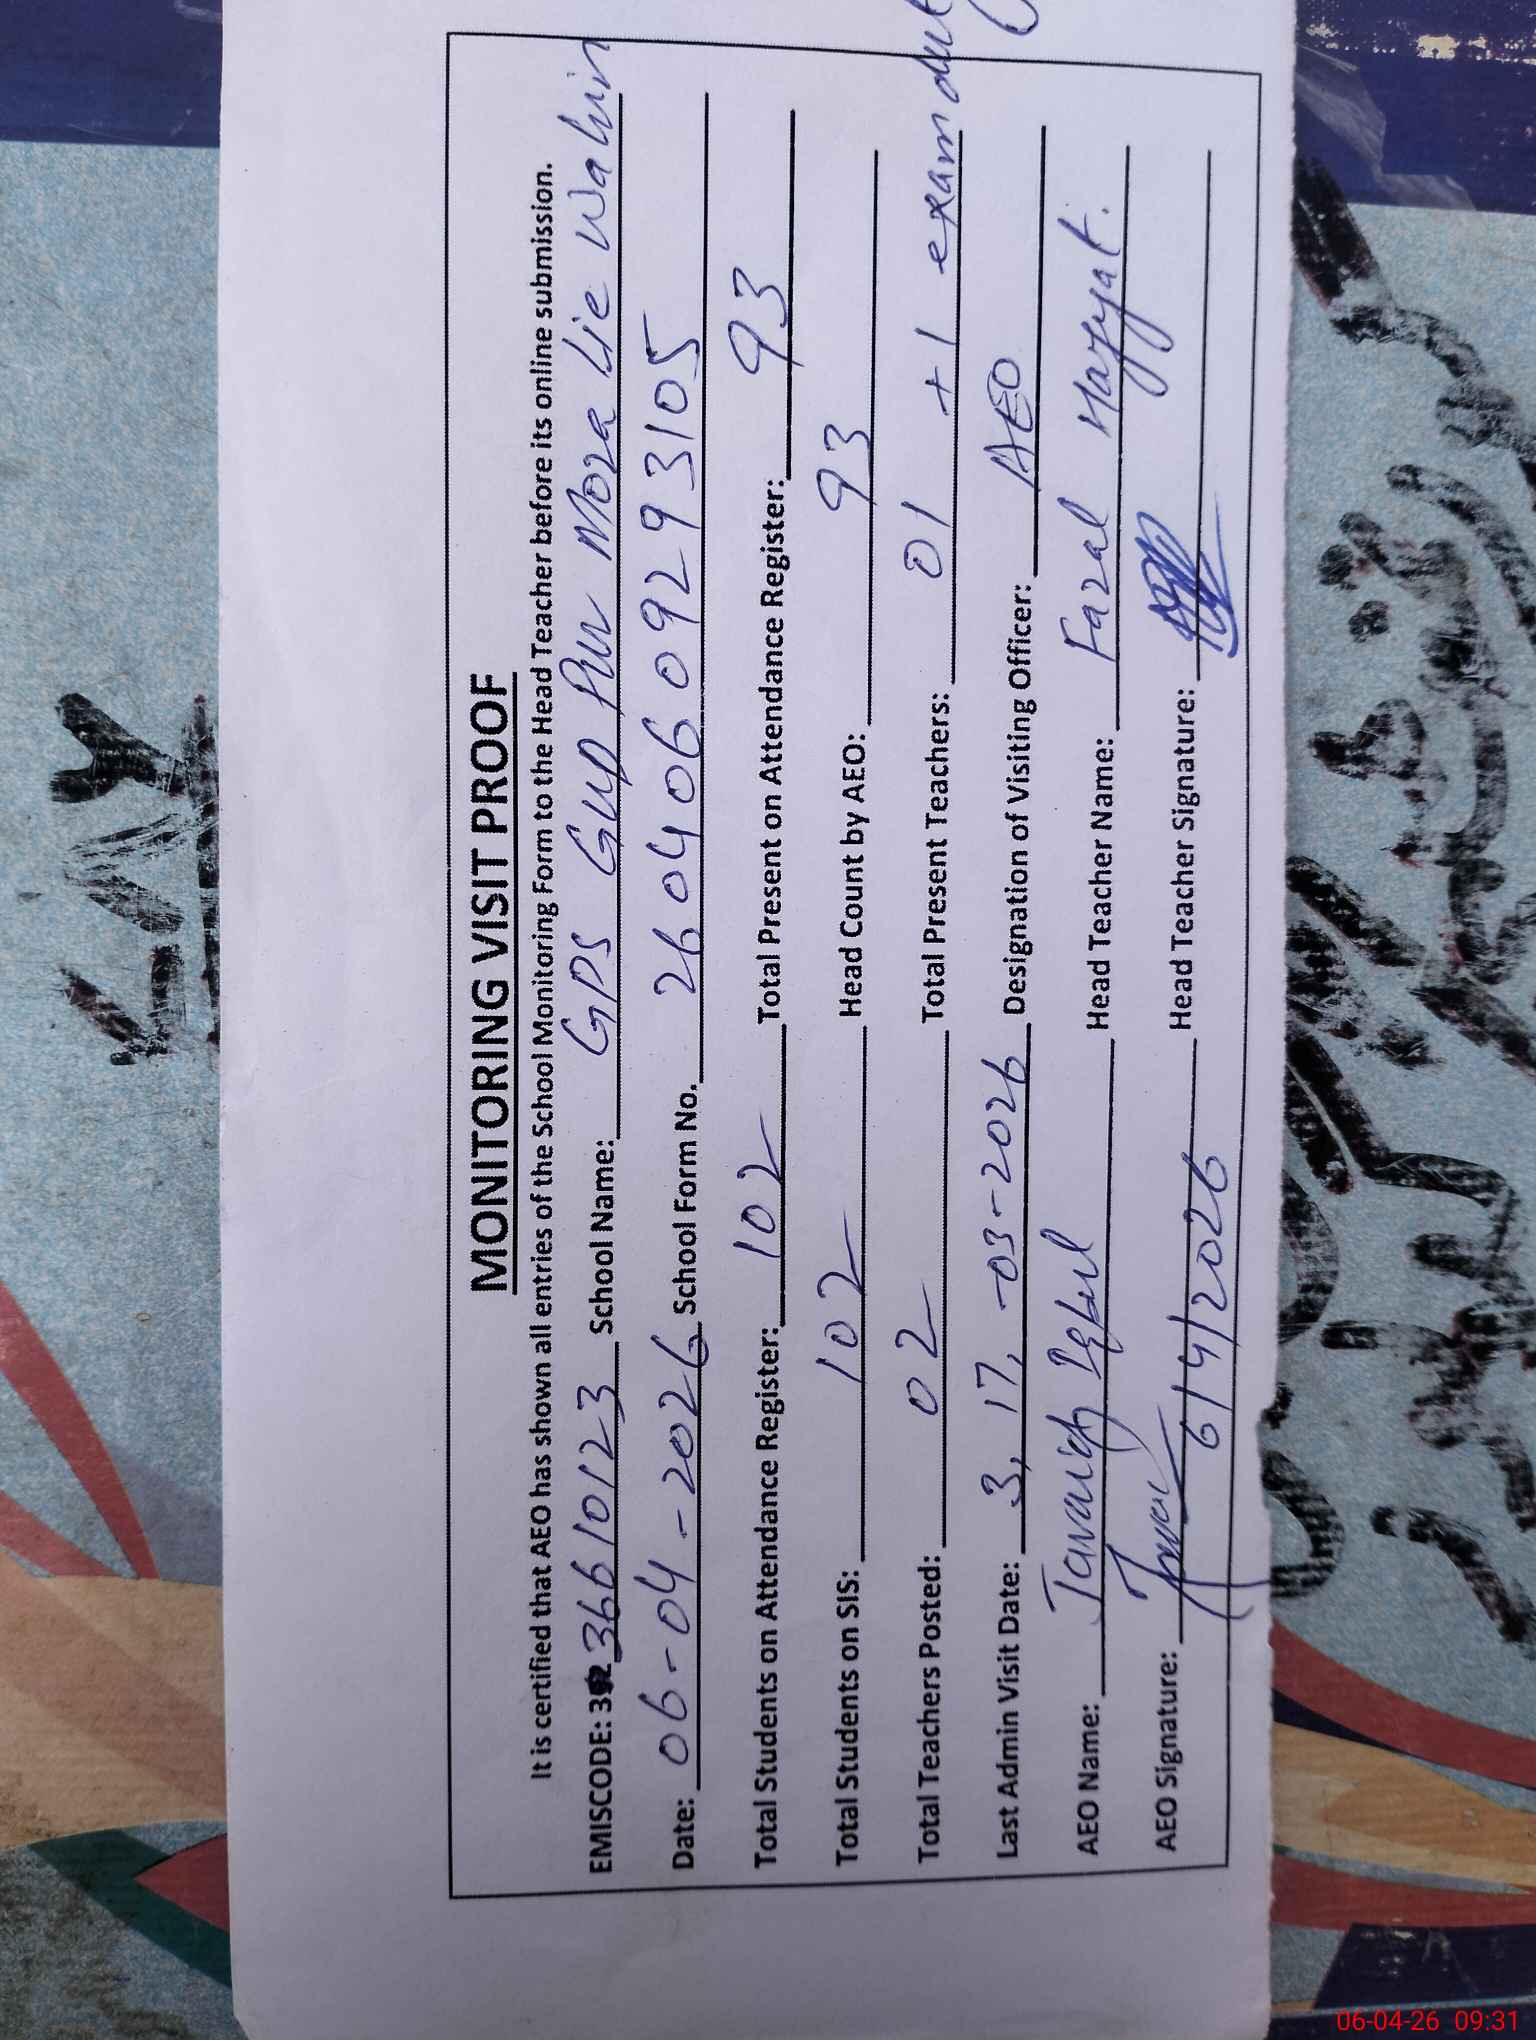 MONITORING VISIT PROOF
It is certified that AEO has shown all entries of the School Monitoring Form to the Head Teacher before its online submission.
EMISCODE: 36610123 School Name: GPS Gup Pur Moza Lie Wahin
Date: 06-04-2026 School Form No. 26040609293105
Total Students on Attendance Register: 102 Total Present on Attendance Register: 93
Total Students on SIS: 102 Head Count by AEO: 93
Total Teachers Posted: 02 Total Present Teachers: 01 + 1 exam duty
Last Admin Visit Date: 3, 17, -03-2026 Designation of Visiting Officer: AEO
AEO Name: Javaid Iqbal Head Teacher Name: Fazal Hayyat.
AEO Signature: 6/4/2026 Head Teacher Signature:
06-04-26 09:31